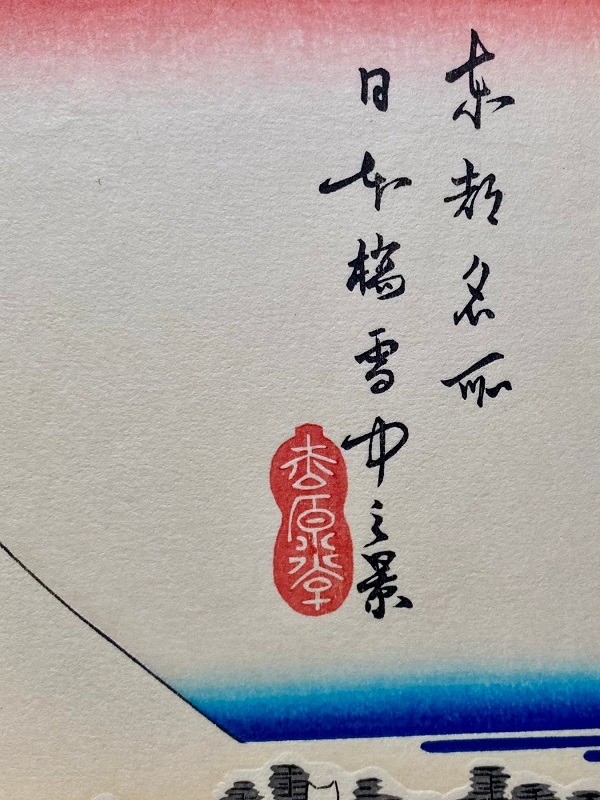 東都名所
日本橋雪中之景